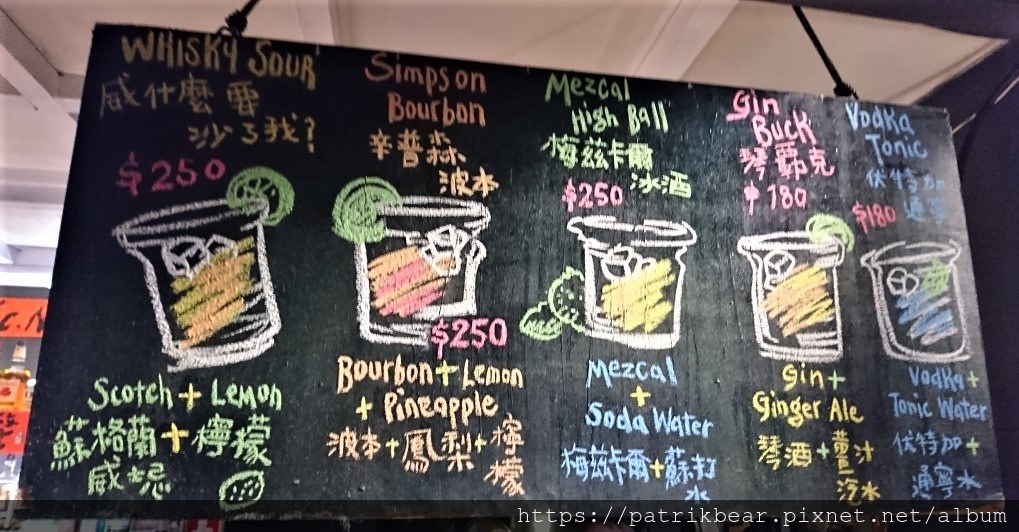 WHISKY SOUR
威什麼要
沙了我?
$250
Scotch + Lemon
蘇格蘭+檸檬
威士忌
Simpson
Bourbon
辛普森
波本
$250
Bourbon + Lemon
+ Pineapple
波本+鳳梨+檸
檬
Mezcal
High Ball
梅茲卡爾
冰酒
$250
Mezcal
+
Soda Water
梅茲卡爾+蘇打
水
Gin
Buck
琴霸克
$180
Gin+
Ginger Ale
琴酒+薑汁
汽水
Vodka
Tonic
伏特加
通寧
$180
Vodka+
Tonic Water
伏特加+
通寧水
https://patrikbear.pixnet.net/album